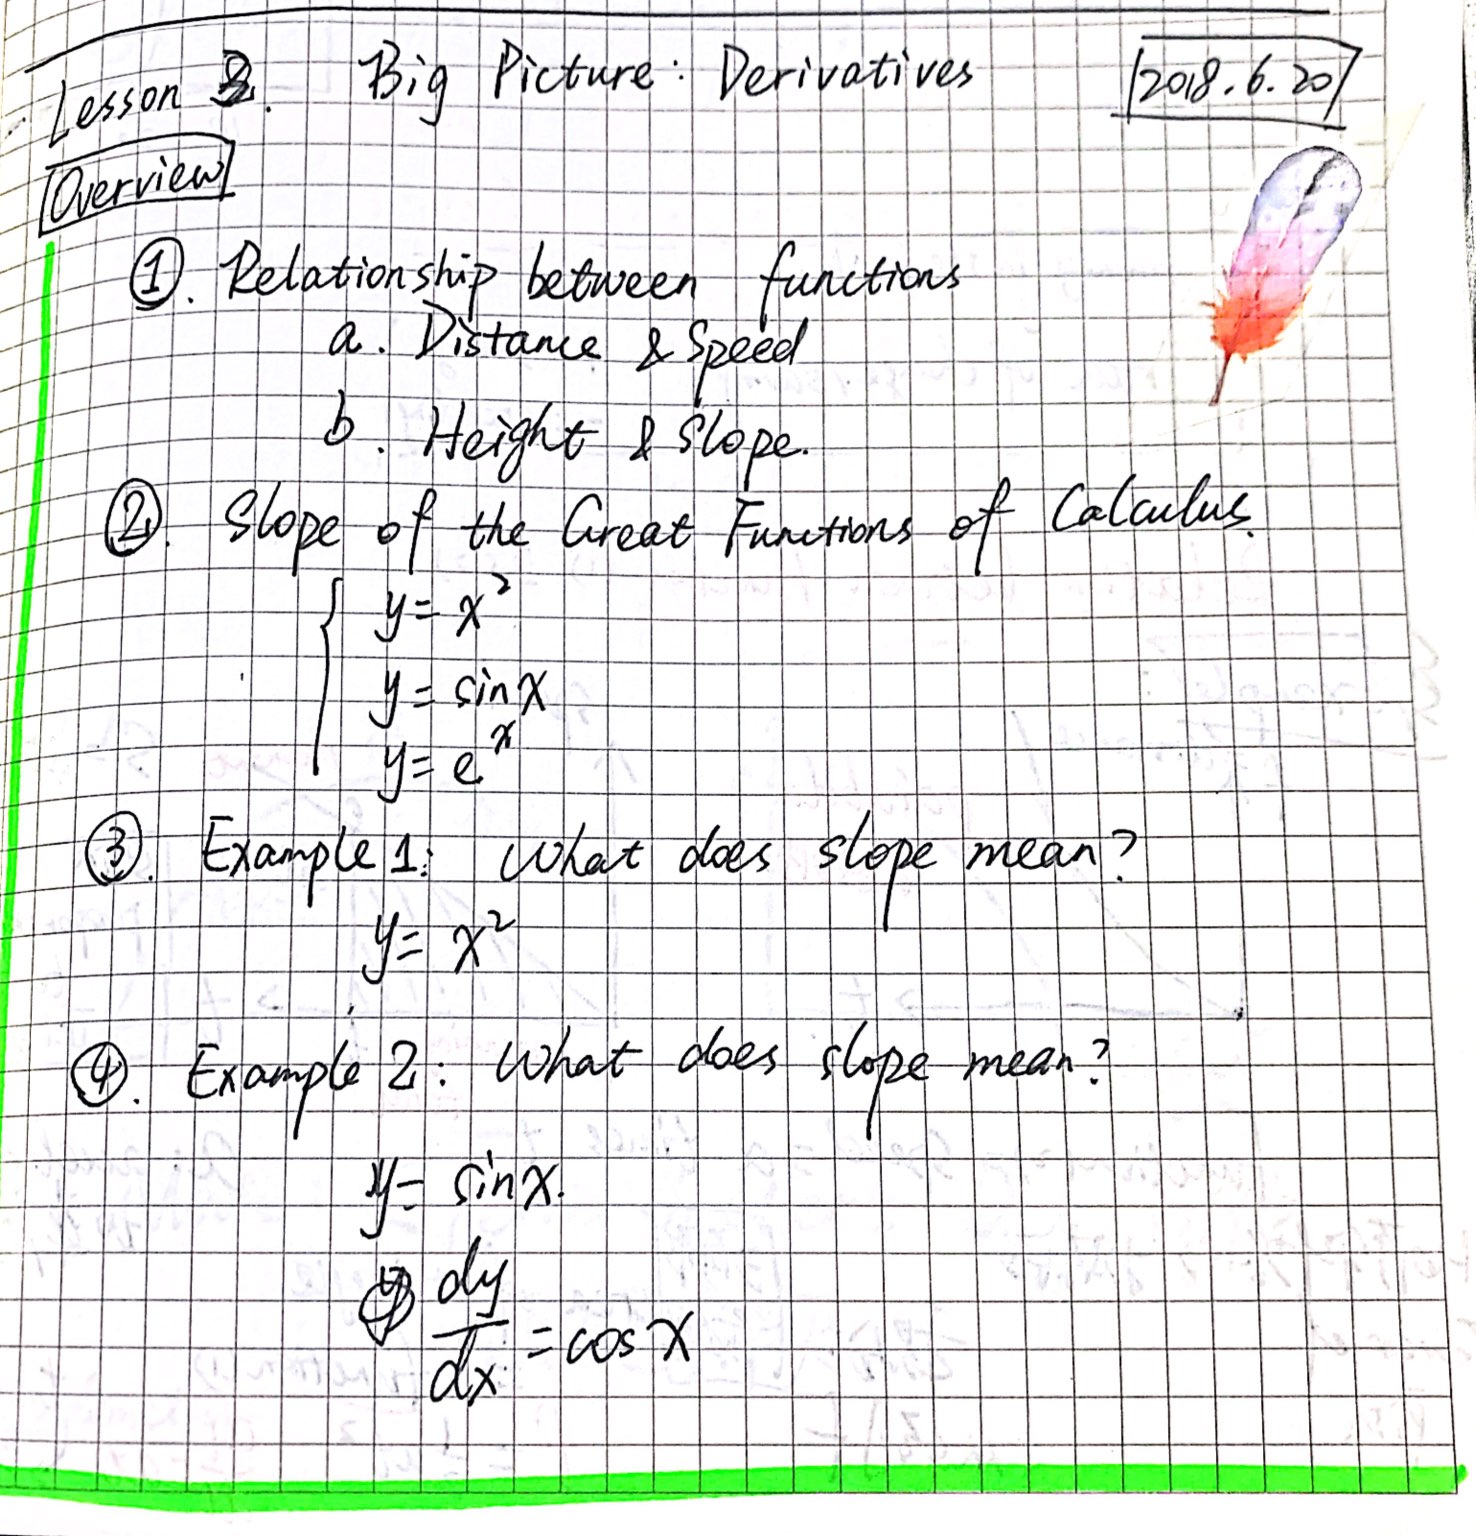 Lesson 2. Big Picture: Derivatives 2018.6.20
Overview
①. Relationship between functions
a. Distance & Speed
b. Height & Slope.
②. Slope of the Great Functions of Calculus.
y = x²
y = sin x
y = eˣ
③. Example 1: What does slope mean?
y = x²
④. Example 2: What does slope mean?
y = sin x.
dy/dx = cos x